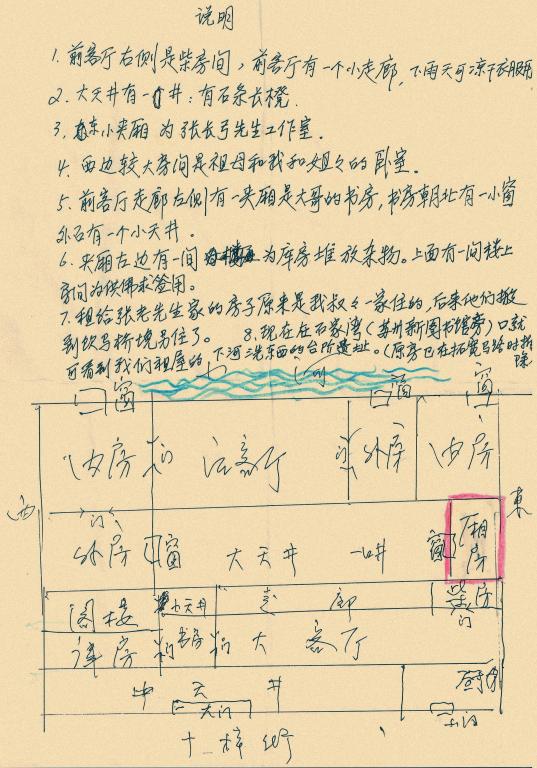 说明
1. 前客厅右侧是柴房间，前客厅有一个小走廊，下雨天可凉干衣服用
2. 大天井有一口井：有石条长櫈.
3. 东小夹厢 为张长弓先生工作室.
4. 西边较大房间是祖母和我和姐々的卧室.
5. 前客厅走廊左侧有一夹厢是大哥的书房，书房朝北有一小窗
外面有一个小天井.
6. 夹厢左边有一间 为库房堆放杂物。上面有一间楼上
房间为供佛求签用。
7. 租给张老先生家的房子原来是我叔々一家住的，后来他们搬
到饮马桥堍另住了。 8. 现在在石家湾（苏州新图书馆旁）口就
可看到我们祖屋的，下河洗东西的台阶遗址。（原房已在拓宽马路时拆
除
窗 河 窗 窗
内房 门 后客厅 门 外房 内房
西 東
门
外房 窗 大天井 一口井 窗 厢房
阁楼 小天井 走廊 柴房
门
库房 门 书房 门 大客厅
中天井 厨房
大门
十梓街